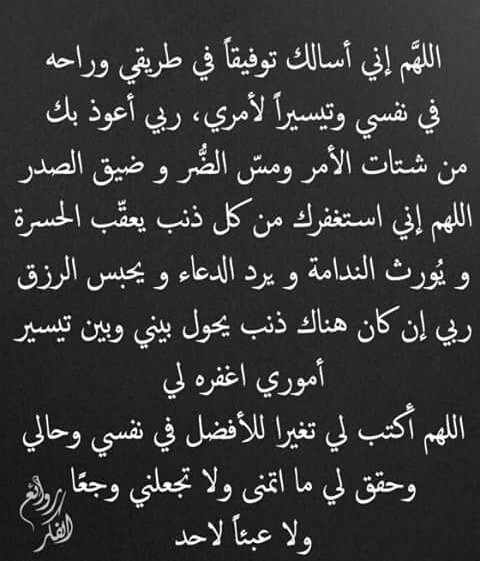 اللهَّم إني أسالك توفيقاً في طريقي وراحه
في نفسي وتيسيراً لأمري، ربي أعوذ بك
من شتات الأمر ومسّ الضُّر و ضيق الصدر
اللهم إني استغفرك من كل ذنب يعقّب الحسرة
و يُورث الندامة و يرد الدعاء و يحبس الرزق
ربي إن كان هناك ذنب يحول بيني وبين تيسير
أموري اغفره لي
اللهم أكتب لي تغيرا للأفضل في نفسي وحالي
وحقق لي ما اتمنى ولا تجعلني وجعًا
ولا عبئاً لاحد
روائع
الفكر